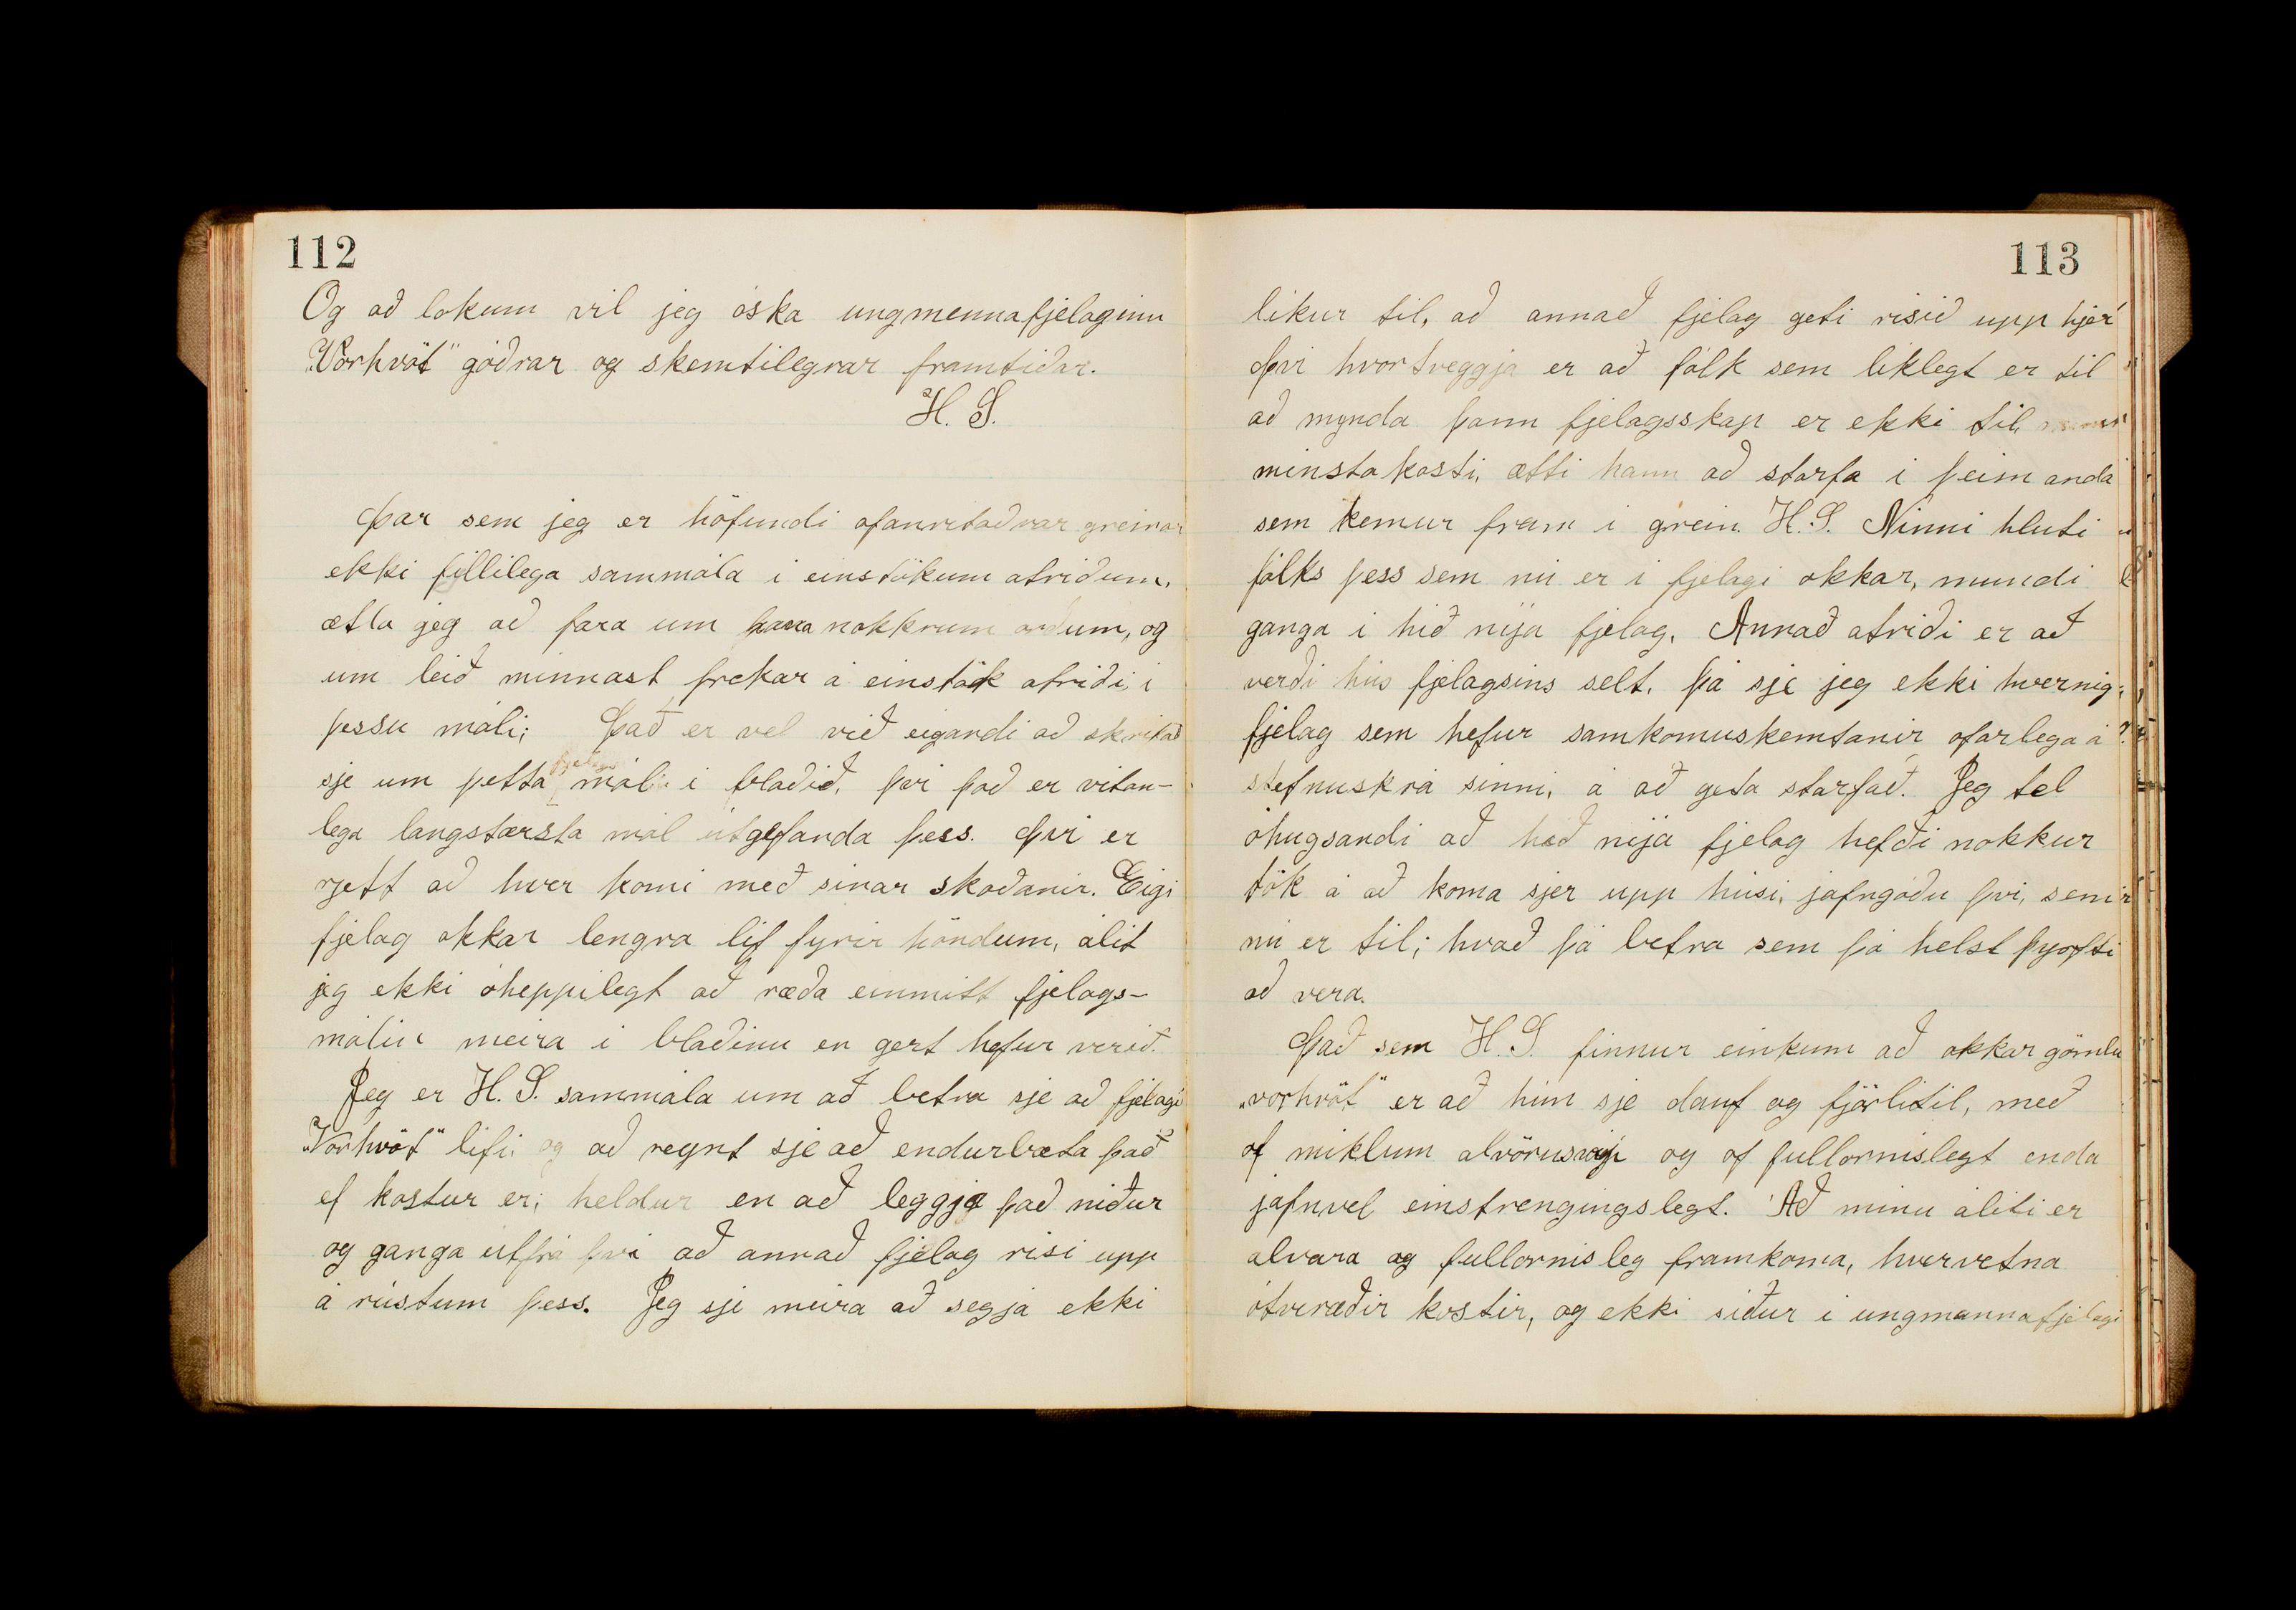 112
Og að lokum vil jeg óska ungmennafjelaginu
„Vorhvöt" góðrar og skemtilegrar framtíðar.
H. S.
Þar sem jeg er höfundi ofanritaðrar greinar
ekki fyllilega sammála i einstökum atriðum,
ætla jeg að fara um hana nokkrum orðum, og
um leið minnast frekar á einstök atriði i
þessu máli; Það er vel við eigandi að skrifað
sje um þetta fjelags máli i blaðið, því það er vitan-
lega langstærsta mál útgefanda þess. Því er
rjett að hver komi með sínar skoðanir. Eigi
fjelag okkar lengra líf fyrir höndum, álít
jeg ekki óheppilegt að ræða einmitt fjelags-
málin meira i blaðinu en gert hefur verið.
Jeg er H. S. sammála um að betra sje að fjelagi
„Vorhvöt" lifi, og að reynt sje að endurbæta það
ef kostur er; heldur en að leggja það niður
og ganga útfrá því að annað fjelag risi upp
á rústum þess. Jeg sje meira að segja ekki
113
líkur til, að annað fjelag geti risið upp hjer
Því hvortveggja er að fólk sem líklegt er til
að mynda þann fjelagsskap er ekki til,
minsta kosti, ætti hann að starfa i þeim anda
sem kemur fram i grein H. S. Minni hluti
fólks þess sem nú er i fjelagi okkar, mundi
ganga i hið nýja fjelag. Annað atriði er að
verði hús fjelagsins selt, þá sje jeg ekki hvernig
fjelag sem hefur samkomuskemtanir ofarlega á
stefnuskrá sinni, á að geta starfað. Jeg tel
óhugsandi að hið nýja fjelag hefði nokkur
tök á að koma sjer upp húsi, jafngóðu því, sem
nú er til; hvað þá betra sem þá helst þyrfti
að vera.
Það sem H. S. finnur einkum að okkar gömlu
„vorhvöt" er að hún sje dauf og fjörlítil, með
of miklum alvörusvip og of fullornislegt enda
jafnvel einstrengingslegt. Að mínu áliti er
alvara og fullornisleg framkoma, hvervetna
ótvíræðir kostir, og ekki síður i ungmannafjelagi